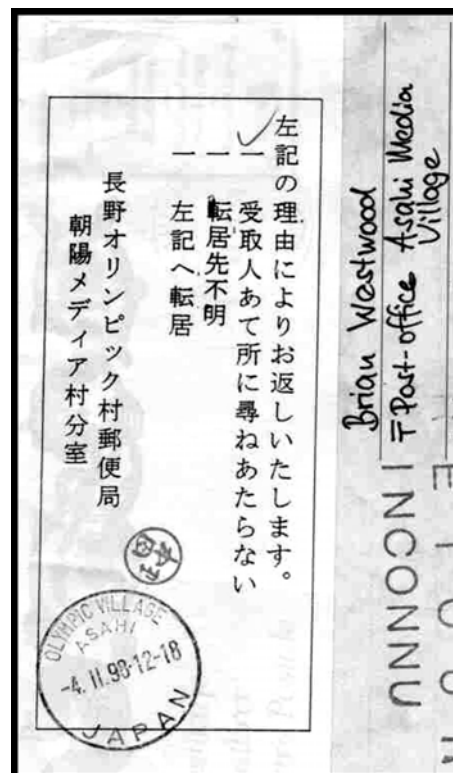 左記の理由によりお返しいたします。
一 受取人あて所に尋ねあたらない
一 転居先不明
一 左記へ転居
長野オリンピック村郵便局
朝陽メディア村分室
OLYMPIC VILLAGE
ASAHI
-4.II.98.12-18
JAPAN
Brian Westwood
〒Post-office Asahi Media
Village
INCONNU